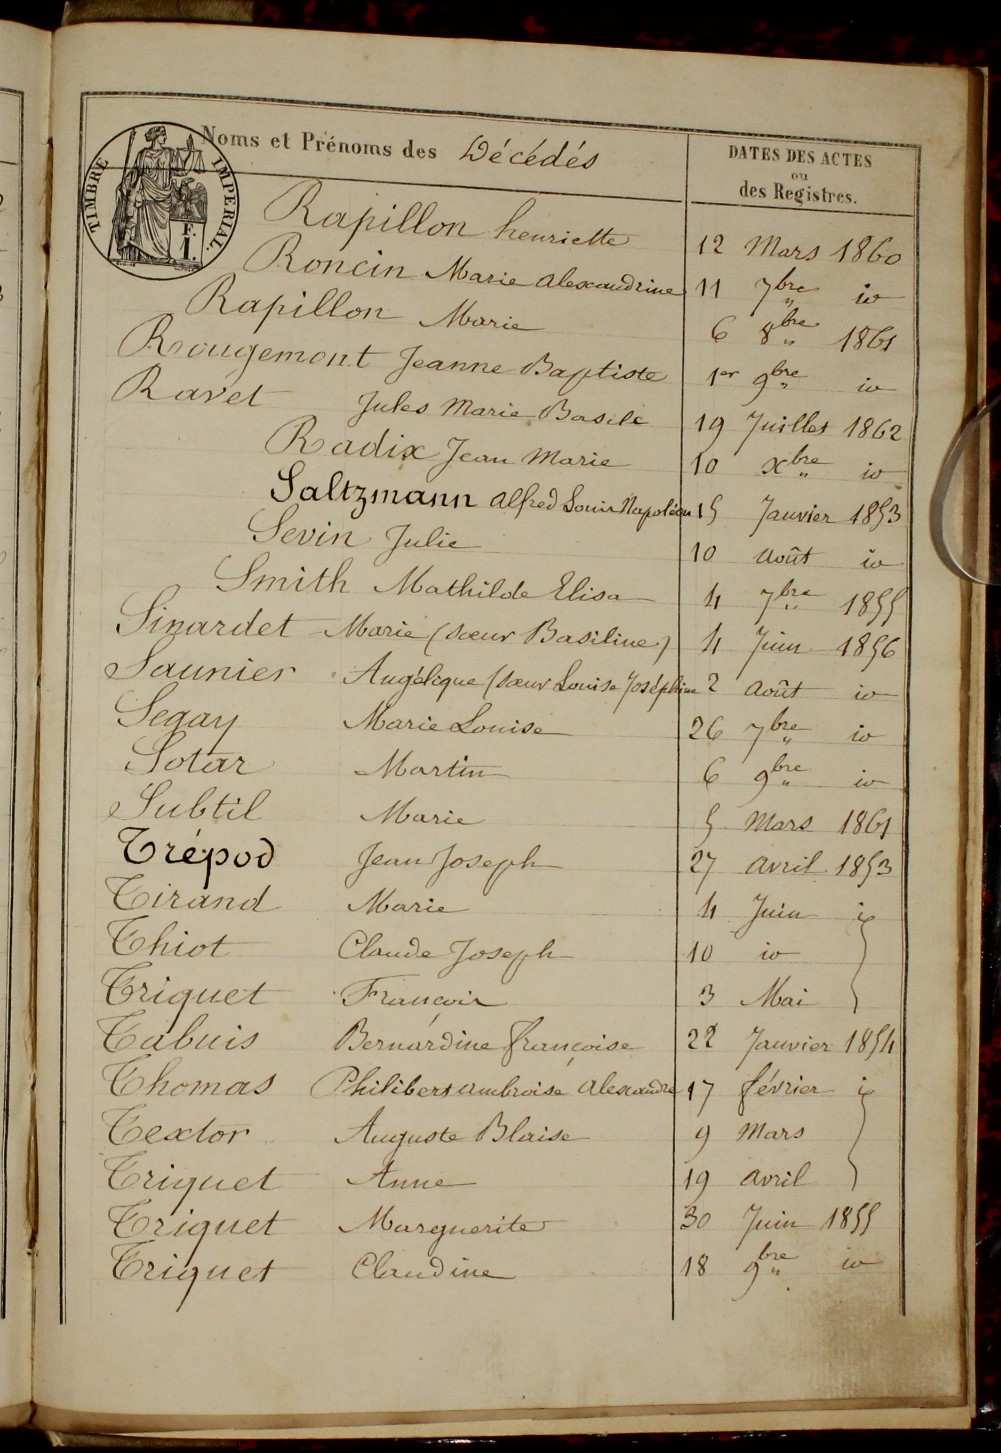 TIMBRE IMPERIAL.
F. 1.
Noms et Prénoms des Décédés
DATES DES ACTES
ou
des Registres.
Rapillon henriette 12 Mars 1860
Roncin Marie Alexandrine 11 7bre " io
Rapillon Marie 6 8bre " 1861
Rougemont Jeanne Baptiste 1er 9bre " io
Ravet Jules Marie Basile 19 Juillet 1862
Radix Jean Marie 10 Xbre " io
Saltzmann Alfred Louis Napoléon 15 Janvier 1853
Sevin Julie 10 Août io
Smith Mathilde Elisa 4 7bre " 1855
Sinardet Marie (sœur Basiline) 4 Juin 1856
Saunier Angélique (sœur Louise Joséphine 2 Août io
Segay Marie Louise 26 7bre " io
Sotar Martin 6 9bre " io
Subtil Marie 5 Mars 1861
Trépod Jean Joseph 27 Avril 1853
Tirand Marie 4 Juin io
Thiot Claude Joseph 10 io
Triquet François 3 Mai
Tabuis Bernardine françoise 22 Janvier 1854
Thomas Philibert Ambroise Alexandre 17 février io
Textor Auguste Blaise 9 Mars
Triquet Anne 19 Avril
Triquet Marguerite 30 Juin 1855
Triquet Claudine 18 9bre " io